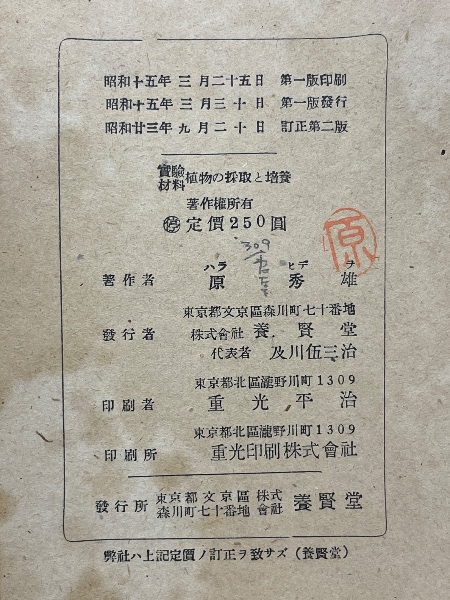 昭和十五年三月二十五日 第一版印刷
昭和十五年三月三十日 第一版發行
昭和廿三年九月二十日 訂正第二版
實驗材料 植物の採取と培養
著作權所有
停 定價250圓
309
原
ハラ ヒデ ヲ
著作者 原 秀 雄
東京都文京區森川町七十番地
發行者 株式會社 養賢堂
代表者 及川伍三治
東京都北區瀧野川町1309
印刷者 重光平治
東京都北區瀧野川町1309
印刷所 重光印刷株式會社
發行所 東京都文京區森川町七十番地 株式會社 養賢堂
弊社ハ上記定價ノ訂正ヲ致サズ(養賢堂)